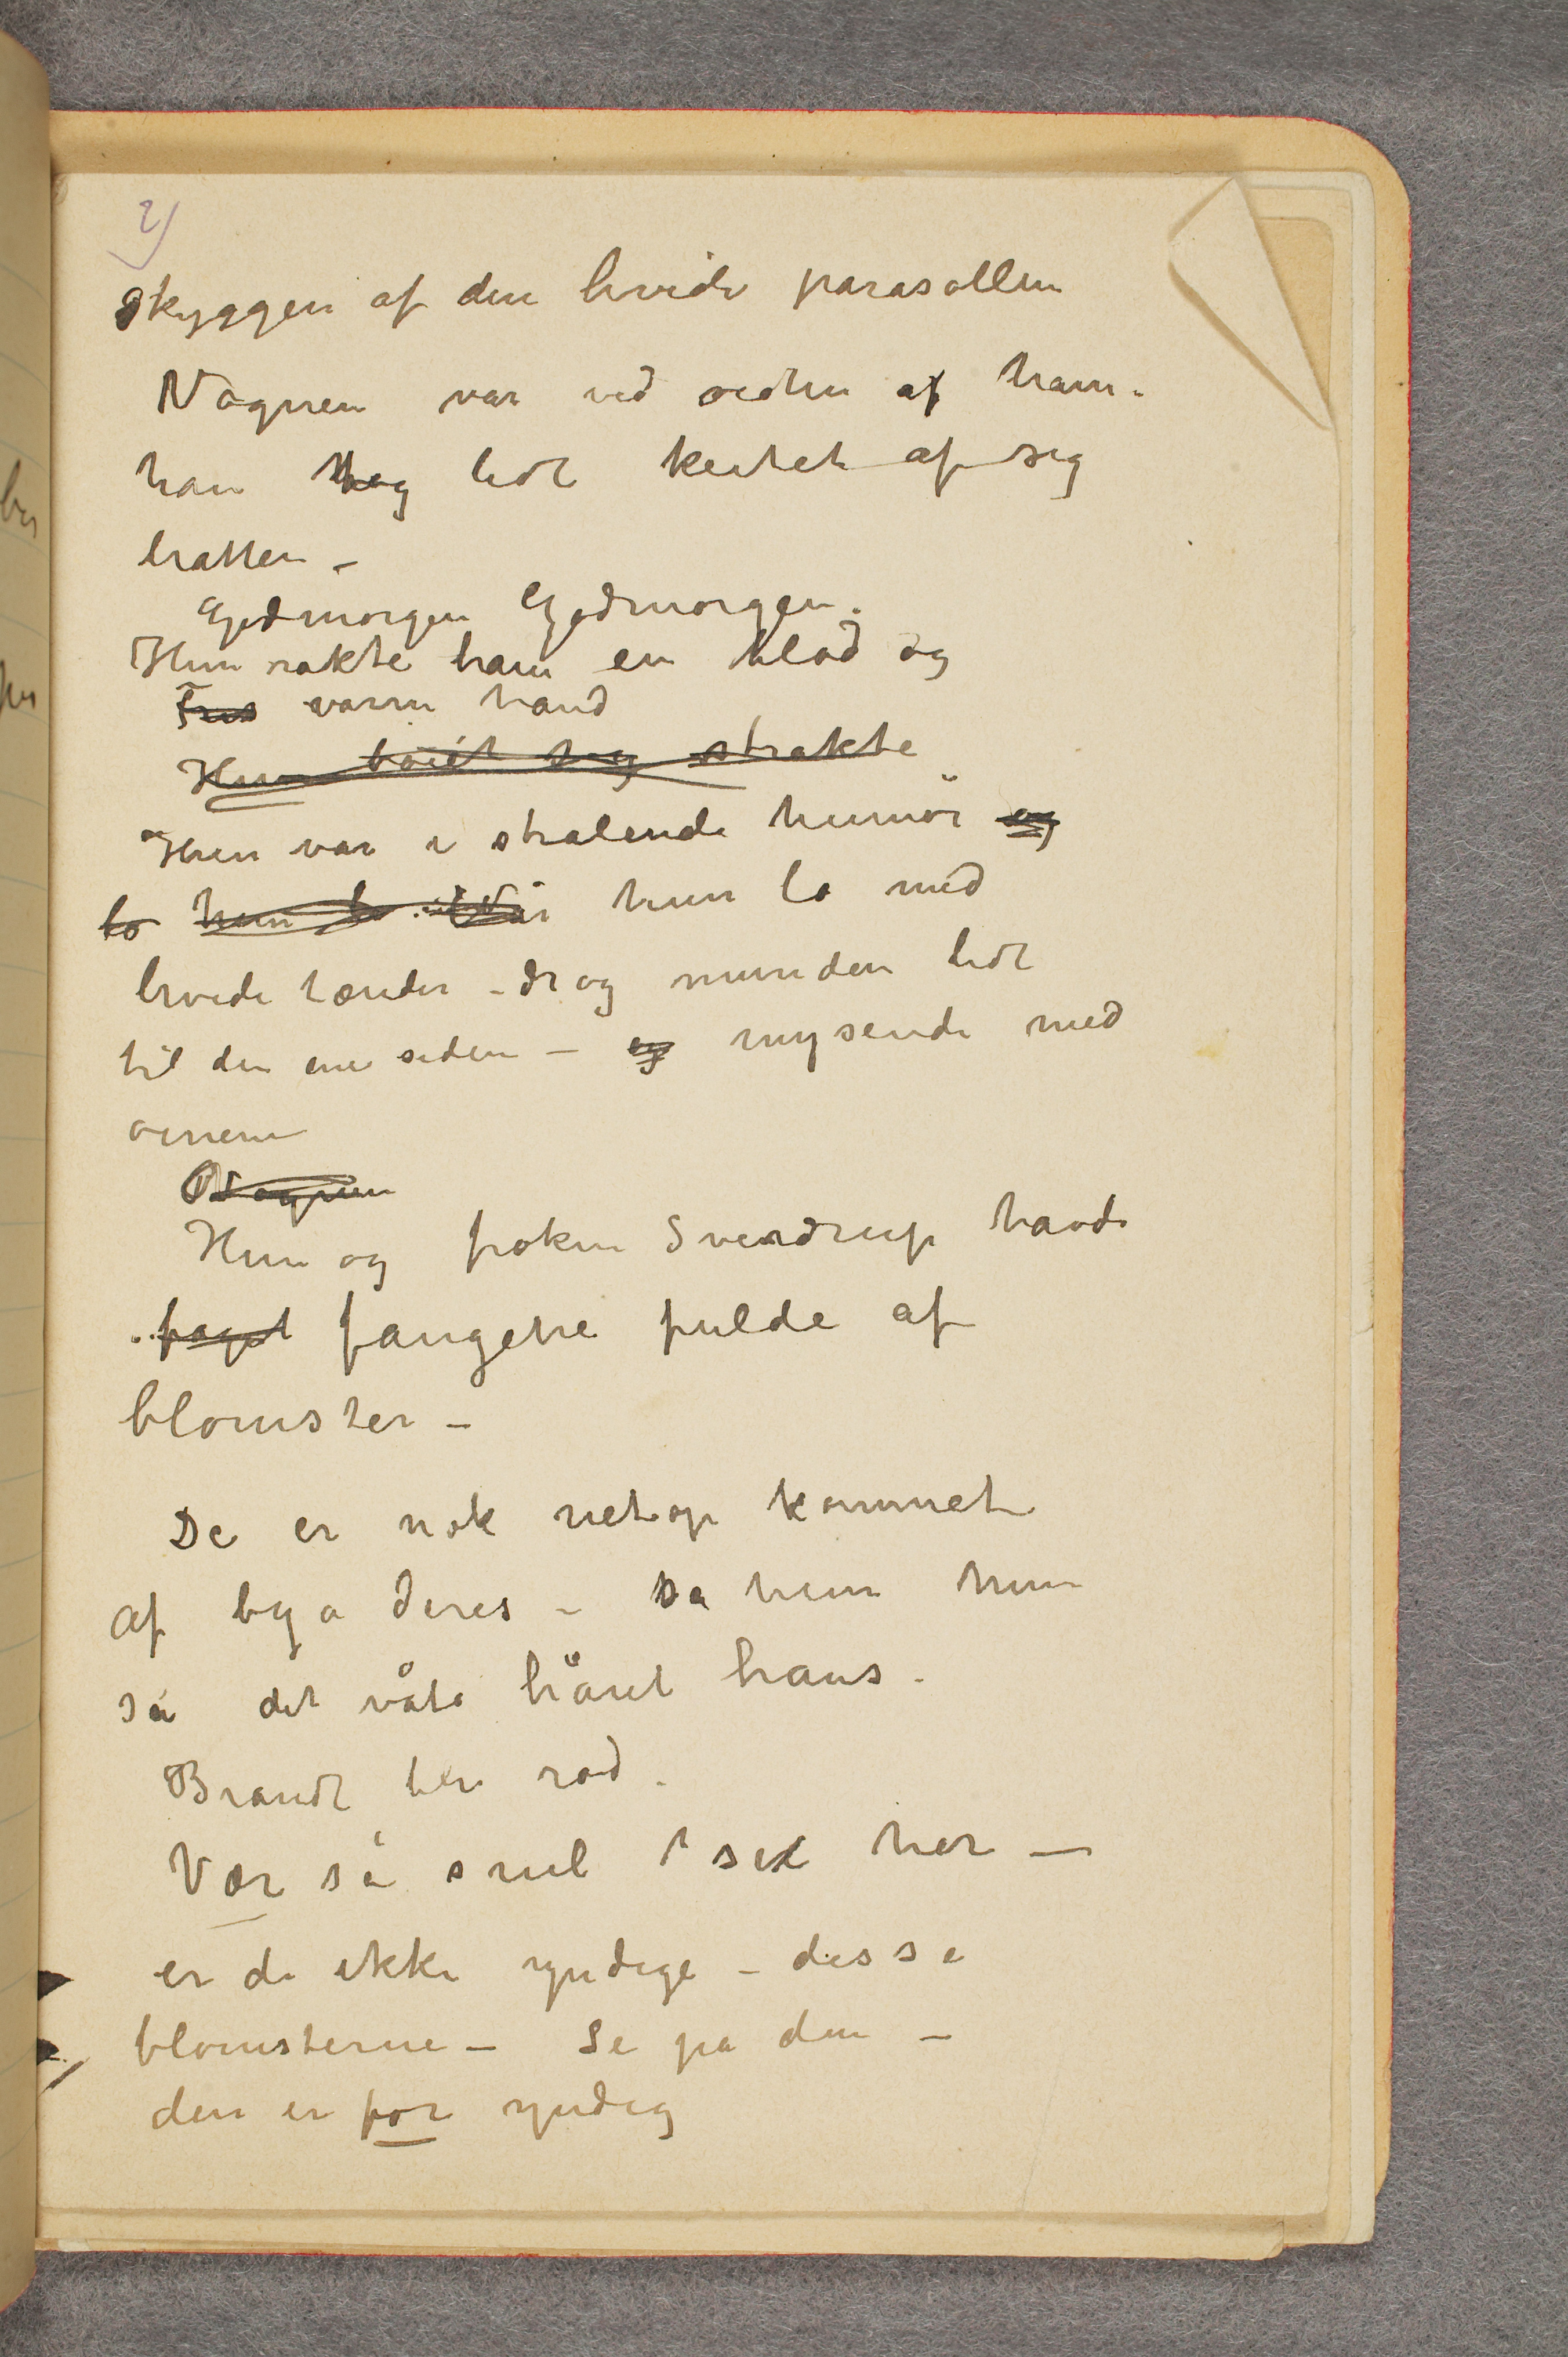 2)
skyggen af den hvide parasollen
Vognen var ved siden af ham.
han tog lidt keitet af sig
hatten –
Godmorgen Godmorgen.
Hun rakte ham en blød og
varm hånd
Hun bøiet sig strakte
Hun var i strålende humør og
lo hun lo når hun lo med
hvide tænder – drog munden lidt
til den ene siden – og mysende med
øinene
Vognen
Hun og frøken Sverdrup havde
faget fangene fulde af
blomster –
De er nok netop kommet
af bya deres – sa hun hun
så det våte håret hans.
Brandt ble rød.
Vær så snil å se her –
er de ikke yndige – disse
blomsterne – Se på den –
den er for yndig